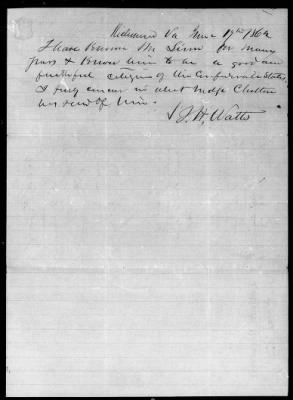 Richmond Va June 17th 1864
I have known Mr for many
years & know him to be a good and
faithful citizen of the Confederate States,
I fully concur in what Judge Chilton
has said of him.
J. H. Watts